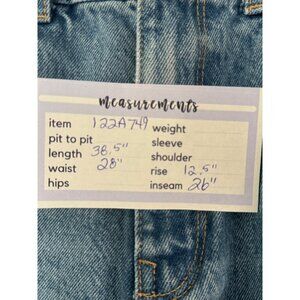 measurements
item 122A749 weight
pit to pit sleeve
length 38.5" shoulder
waist 28" rise 12.5"
hips inseam 26"